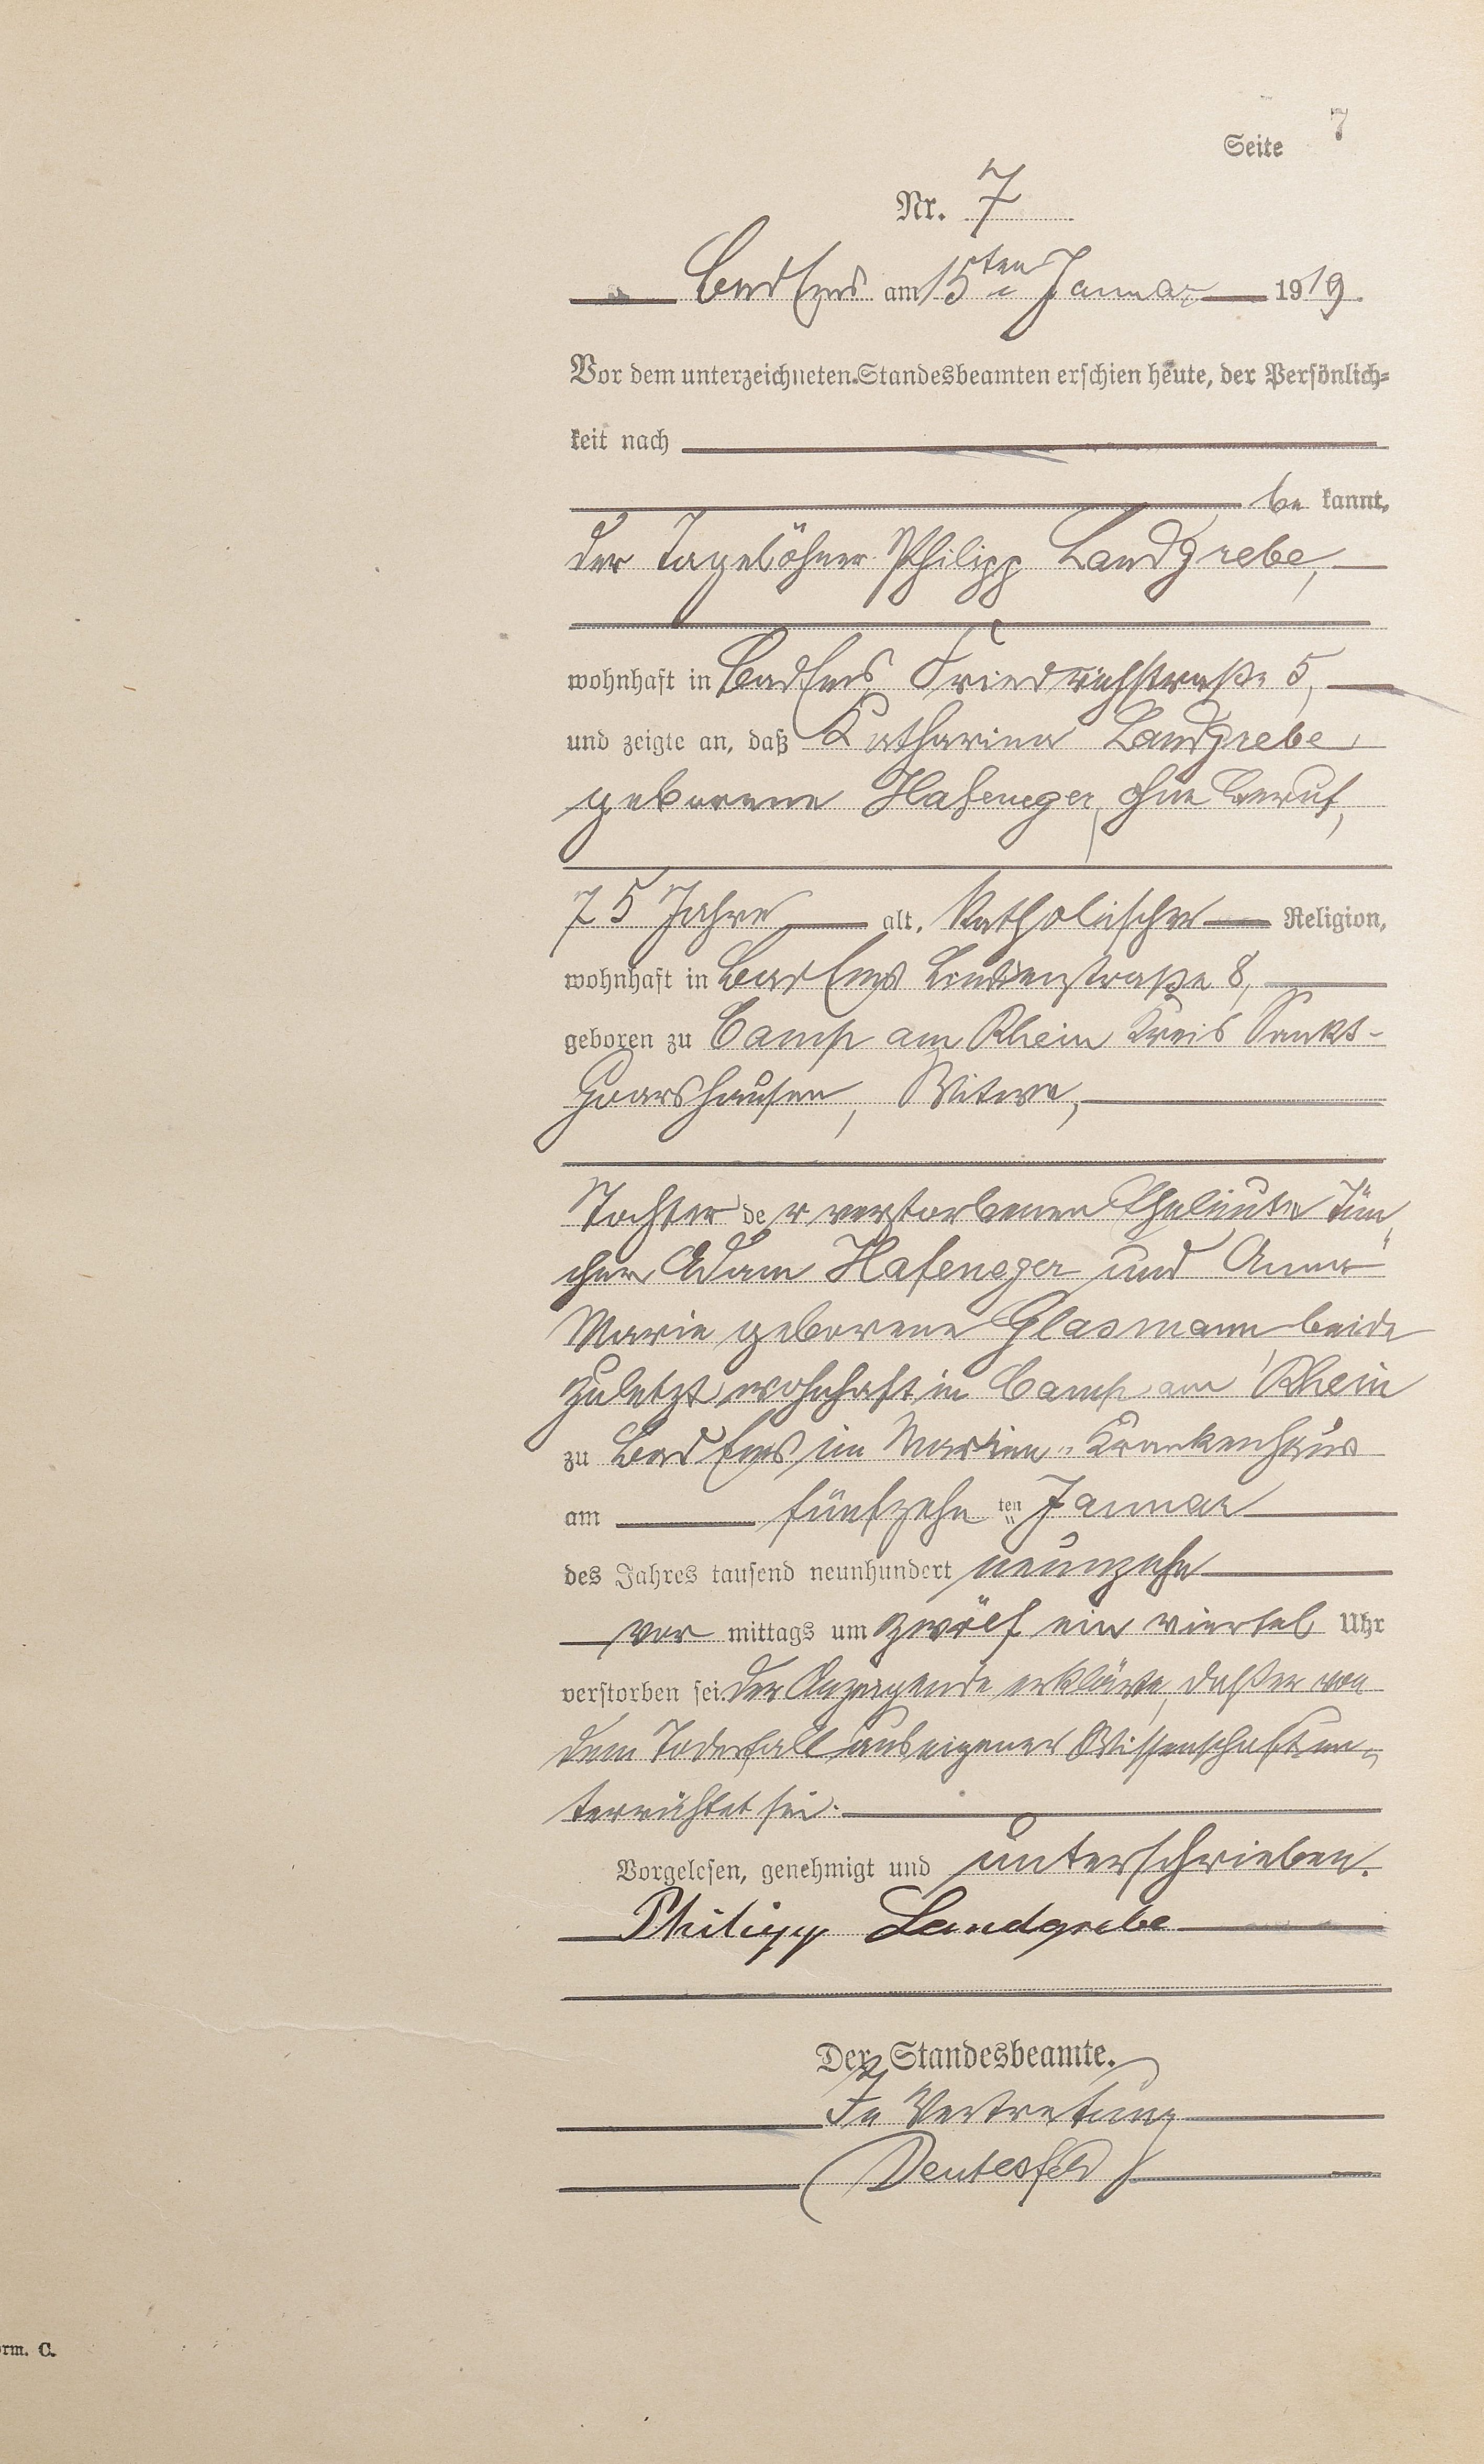 Seite 7
Nr. 7
Bad Ems am 15ten Januar 1919.
Vor dem unterzeichneten Standesbeamten erschien heute, der Persönlich-
keit nach
be kannt,
der Tagelöhner Philipp Landgrebe,
wohnhaft in Bad Ems Friedrichstraße 5,
und zeigte an, daß Katharina Landgrebe,
geborene Hafeneger, ohne Beruf,
75 Jahre alt, katholischer Religion,
wohnhaft in Bad Ems Lindenstraße 8,
geboren zu Camp am Rhein Kreis Sankt-
Goarshausen, Witwe,
Tochter der verstorbenen Eheleute Tün
cher Adam Hafeneger und Anna
Marie geborene Glasmann beide
zuletzt wohnhaft in Camp am Rhein
zu Bad Ems im Marien-Krankenhaus
am fünfzehn ten Januar
des Jahres tausend neunhundert neunzehn
vor mittags um zwölf ein viertel Uhr
verstorben sei. Der Anzeigende erklärte, daß er von
dem Todesfall aus eigener Wissenschaft un-
terrichtet sei.
Vorgelesen, genehmigt und unterschrieben.
Philipp Landgrebe
Der Standesbeamte.
In Vertretung
Deutesfeld
orm. C.